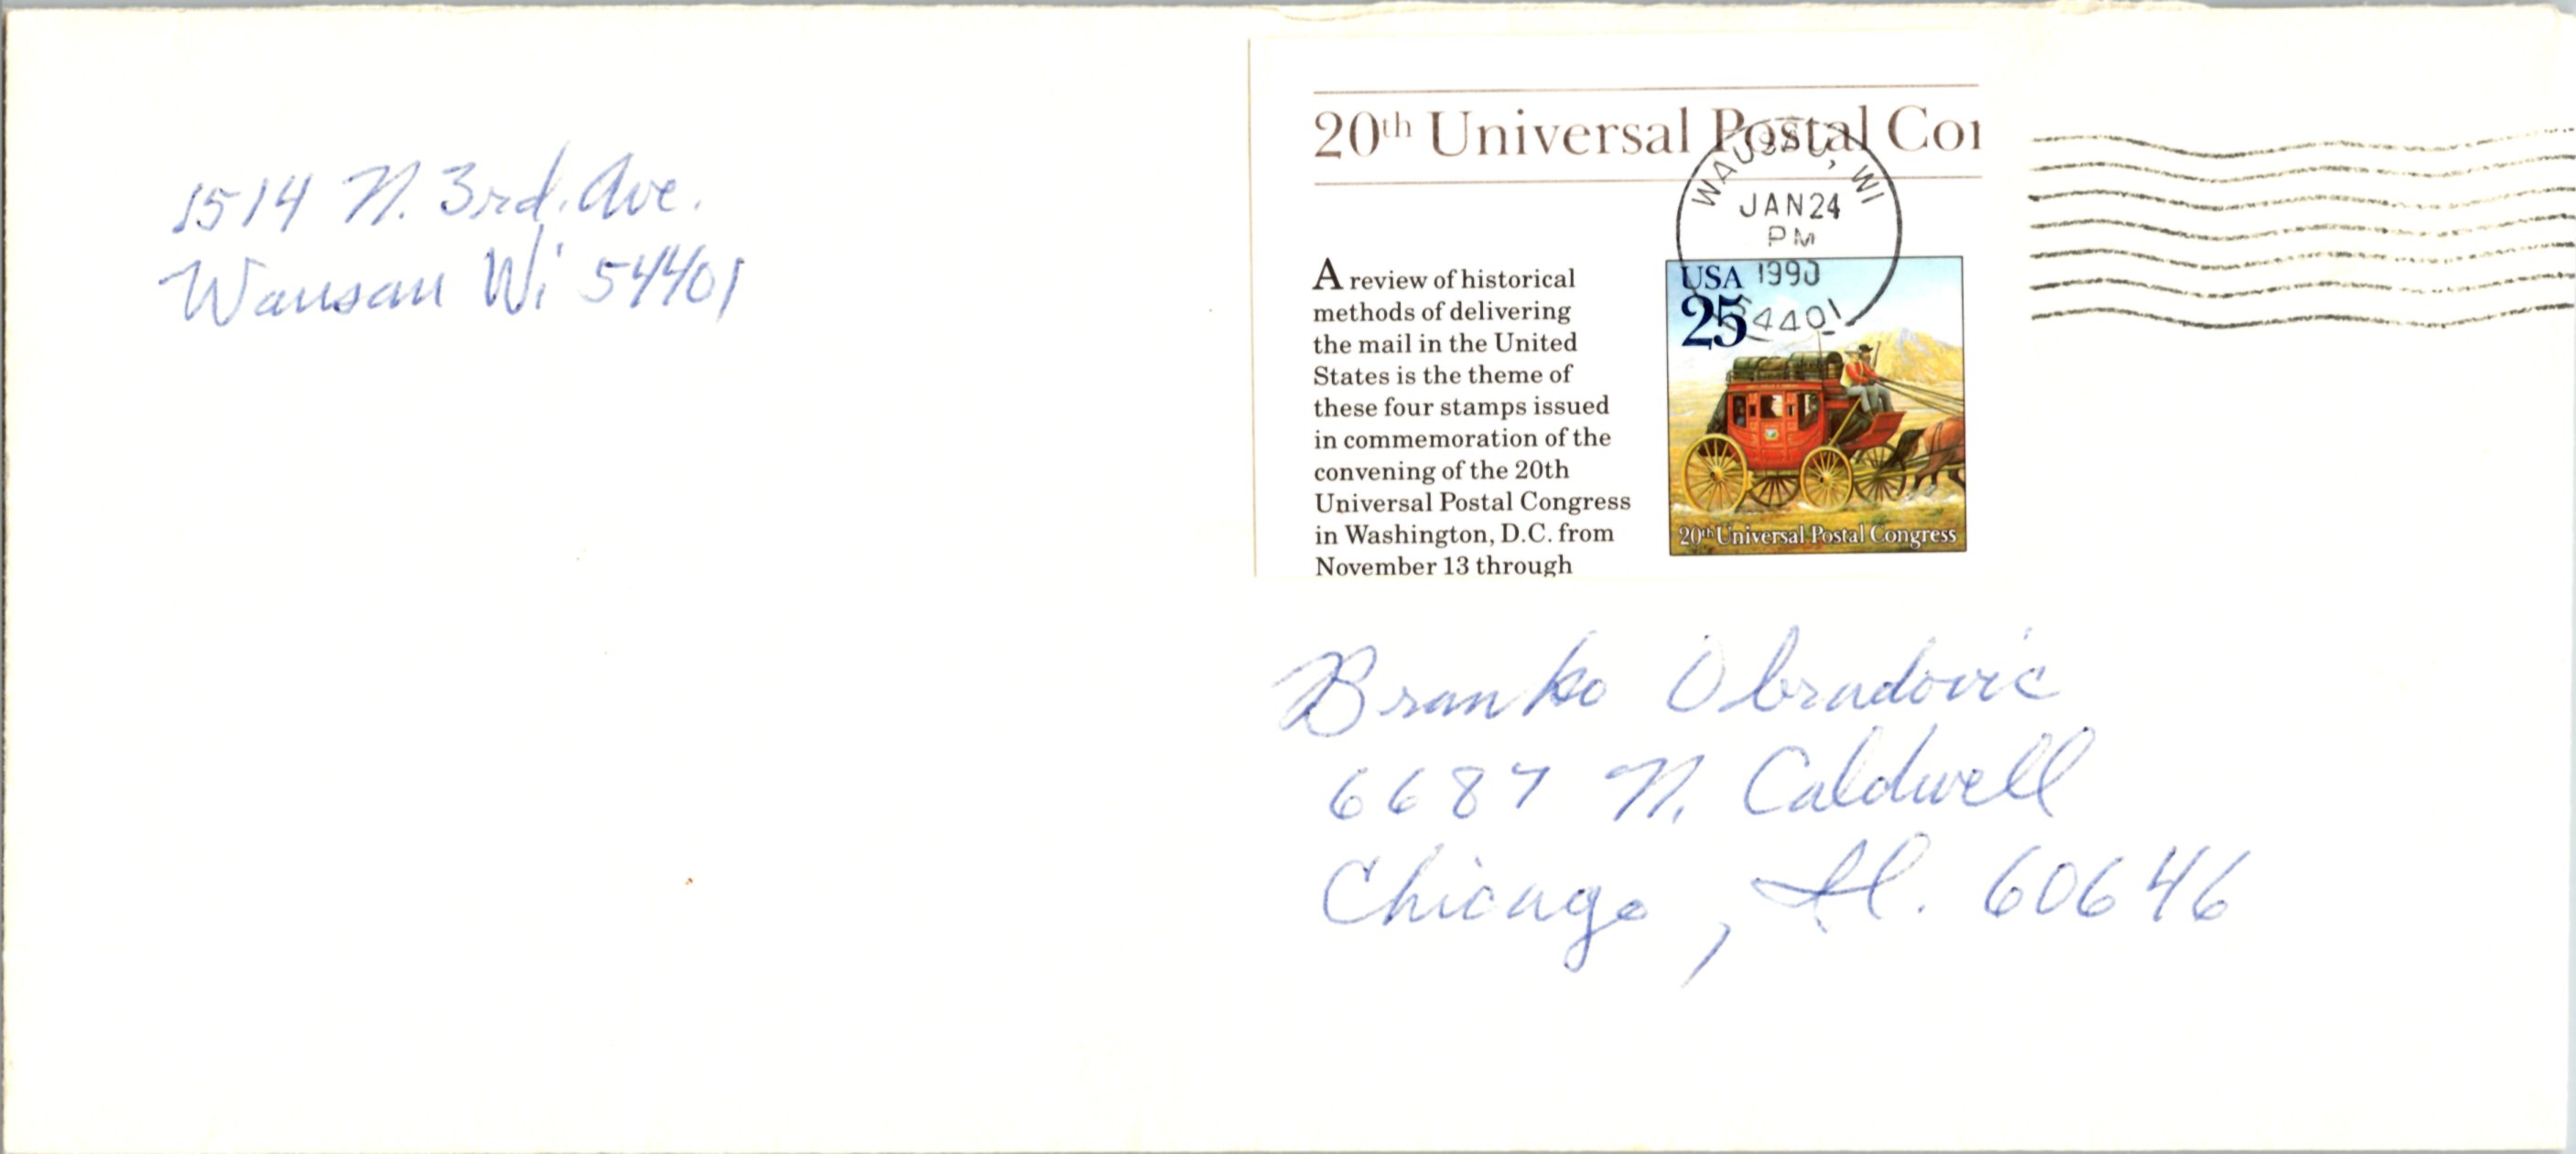 1514 N. 3rd. Ave.
Wausau Wi 54401
20th Universal Postal Co
WAUSAU, WI
JAN 24
PM
1990
54401
A review of historical
methods of delivering
the mail in the United
States is the theme of
these four stamps issued
in commemoration of the
convening of the 20th
Universal Postal Congress
in Washington, D.C. from
November 13 through
USA
25
20th Universal Postal Congress
Branko Obradovic
6687 N. Caldwell
Chicago, Il. 60646